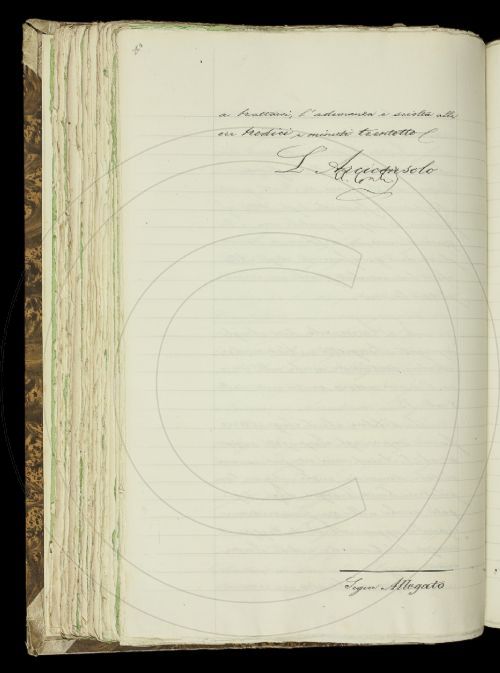 a trattarsi, l'adunanza è sciolta alle
ore tredici e minuti trentotto
L'Arciconsolo
Segue Allegato